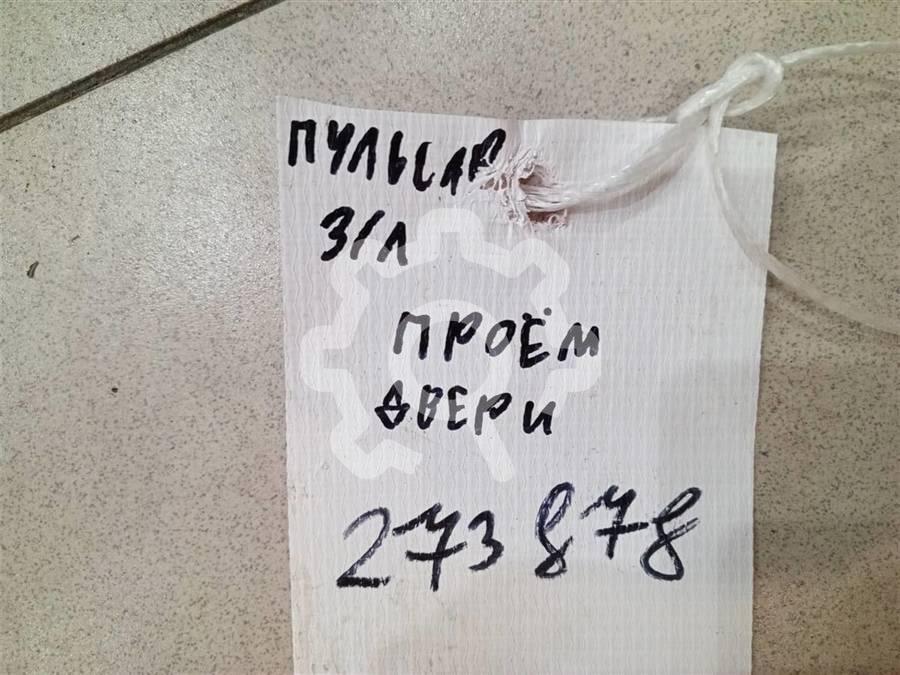 ПУЛЬСАР
З/Л
ПРОЁМ
ДВЕРИ
273 878